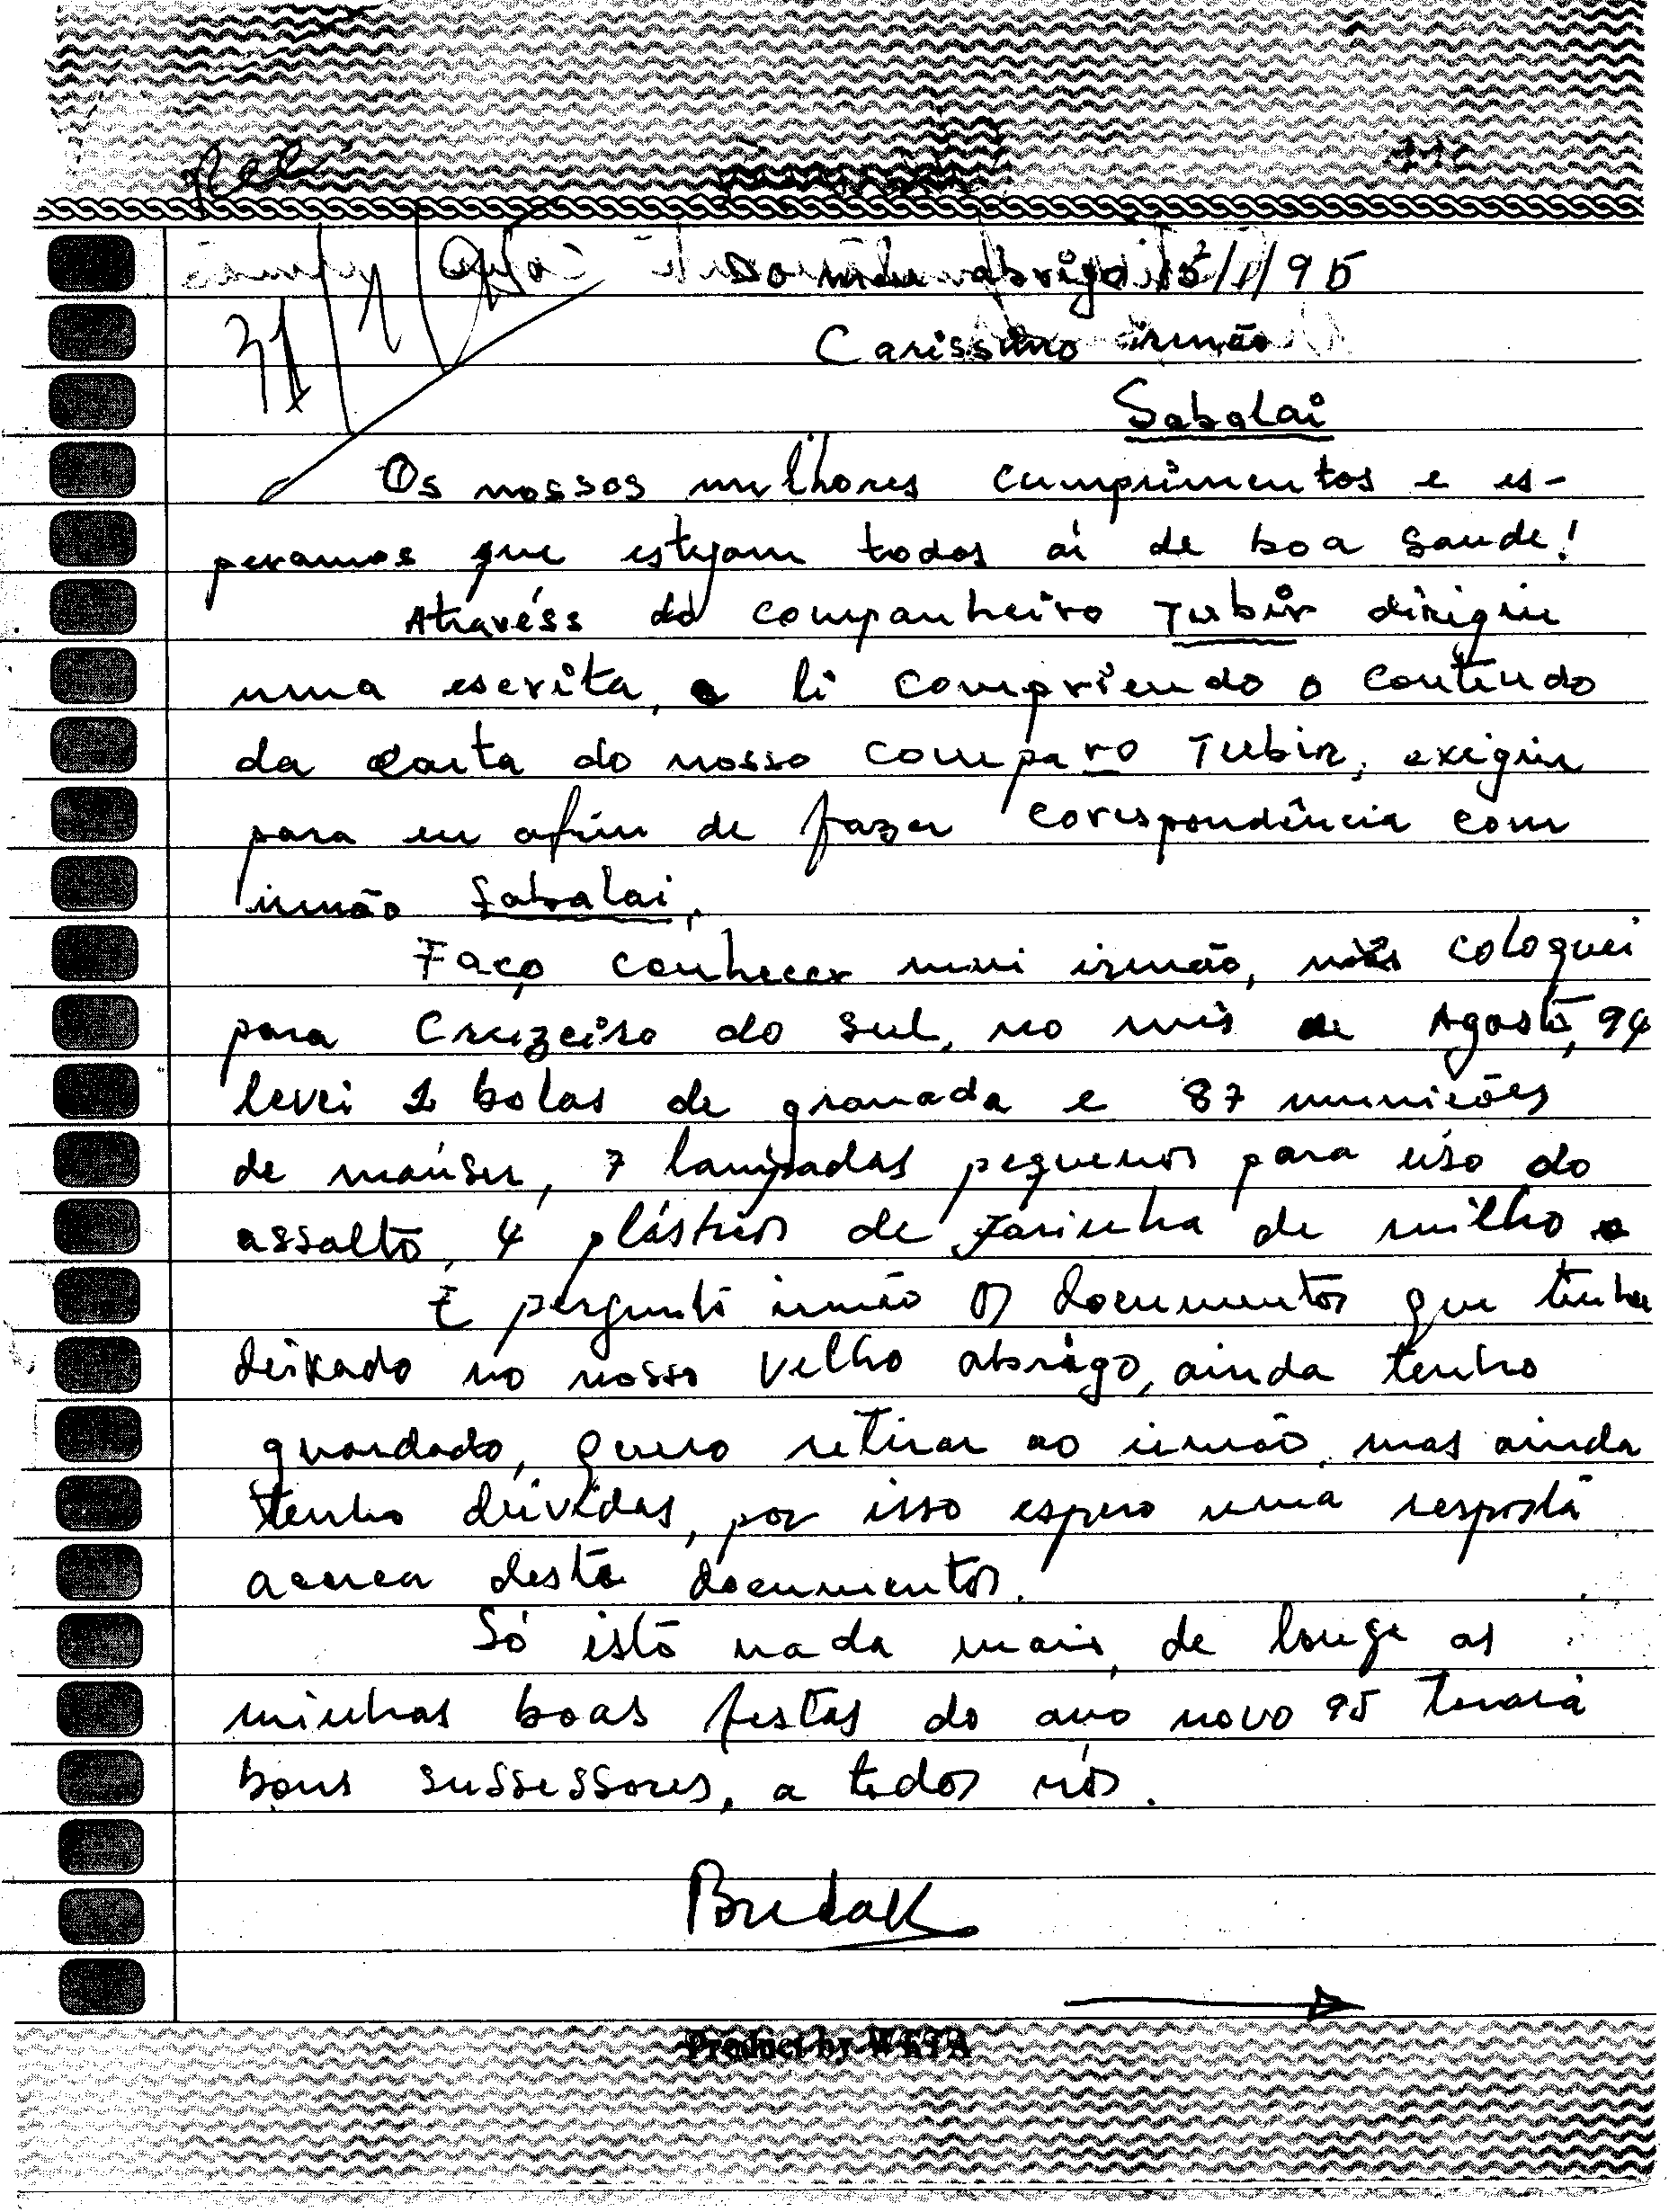 31/1/95
Do meu abrigo 15/1/95
Carissimo irmão
Sabalai
Os nossos milhores cumprimentos e es-
peramos que estejam todos aí de boa saude!
Atravéss do companheiro Tubir dirigiu
uma escrita, e li compriendo o conteudo
da carta do nosso comparo Tubir, exigiu
para eu afim de fazer corespondência com
irmão Sabalai,
Faço conhecer meu irmão, coloquei
para Cruzeiro do Sul, no mês de Agosto, 94
levei 2 bolas de granada e 87 munições
de máuser, 7 lampadas pequenos para uso do
assalto, 4 plásticos de farinha de milho
E pergunto irmão os documentos que tenha
deixado no nosso velho abrigo, ainda tenho
guardado, quero retirar ao irmão, mas ainda
tenho dúvidas, por isso espero uma resposta
acerca desta documentos.
Só isto nada mais, de longe as
minhas boas festas do ano novo 95 terará
bons sussessores, a todos nós.
Budak
Product by WETA